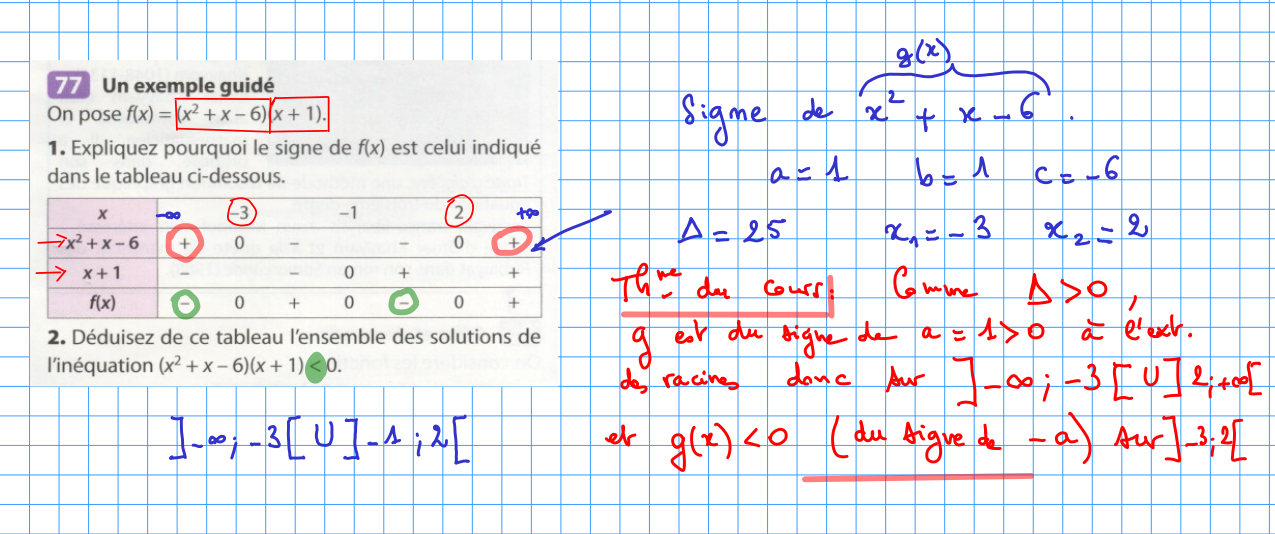 77 Un exemple guidé
On pose f(x) = (x² + x – 6)(x + 1).
1. Expliquez pourquoi le signe de f(x) est celui indiqué
dans le tableau ci-dessous.
x -∞ –3 –1 2 +∞
x² + x – 6 + 0 – – 0 +
x + 1 – – 0 + +
f(x) – 0 + 0 – 0 +
2. Déduisez de ce tableau l'ensemble des solutions de
l'inéquation (x² + x – 6)(x + 1) < 0.
]-∞; -3[ U ]-1; 2[
g(x)
Signe de x² + x - 6.
a = 1 b = 1 c = -6
Δ = 25 x₁ = -3 x₂ = 2
Thme du cours: Comme Δ > 0,
g est du signe de a = 1 > 0 à l'ext.
des racines donc sur ]-∞; -3[ U ]2; +∞[
et g(x) < 0 (du signe de -a) sur ]-3; 2[